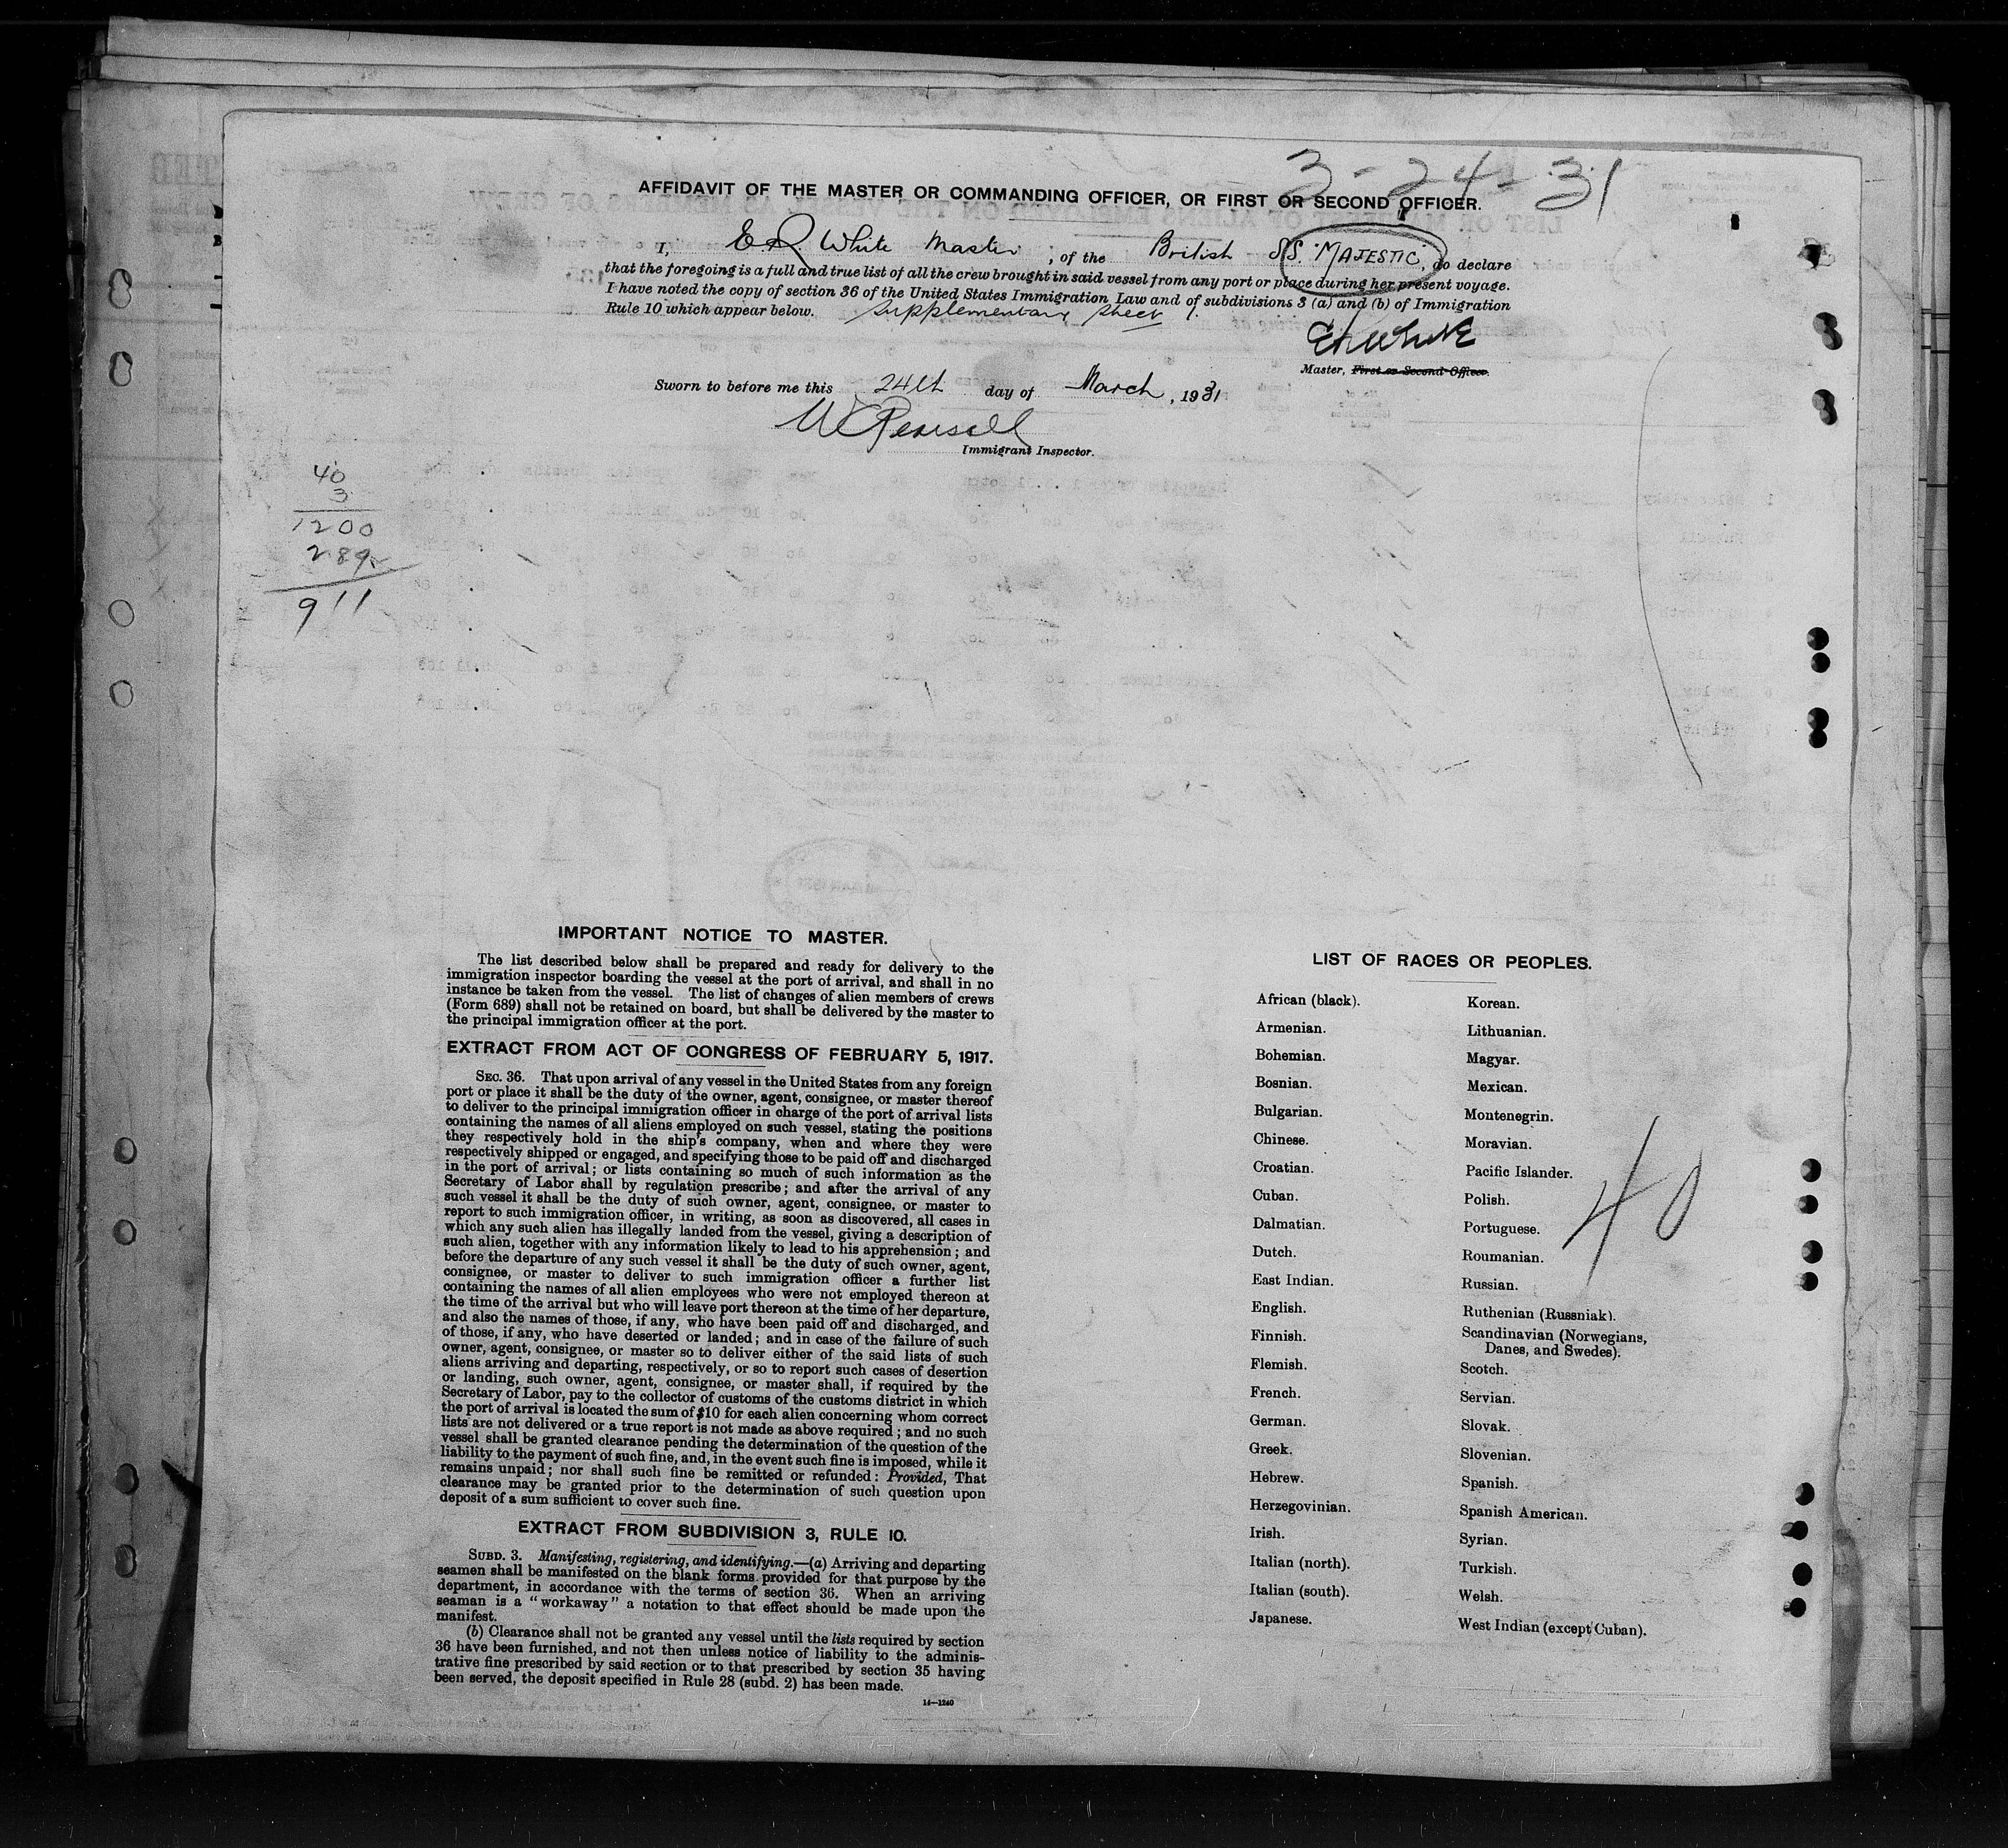 3-24-31
AFFIDAVIT OF THE MASTER OR COMMANDING OFFICER, OR FIRST OR SECOND OFFICER.
I, E R White Master, of the British SS. MAJESTIC, do declare
that the foregoing is a full and true list of all the crew brought in said vessel from any port or place during her present voyage.
I have noted the copy of section 36 of the United States Immigration Law and of subdivisions 3 (a) and (b) of Immigration
Rule 10 which appear below. Supplementary Sheet 1.
E R White
Master, First or Second Officer.
Sworn to before me this 24th day of March, 1931
Immigrant Inspector.
40
3
1200
289
911
IMPORTANT NOTICE TO MASTER.
The list described below shall be prepared and ready for delivery to the
immigration inspector boarding the vessel at the port of arrival, and shall in no
instance be taken from the vessel. The list of changes of alien members of crews
(Form 689) shall not be retained on board, but shall be delivered by the master to
the principal immigration officer at the port.
EXTRACT FROM ACT OF CONGRESS OF FEBRUARY 5, 1917.
SEC. 36. That upon arrival of any vessel in the United States from any foreign
port or place it shall be the duty of the owner, agent, consignee, or master thereof
to deliver to the principal immigration officer in charge of the port of arrival lists
containing the names of all aliens employed on such vessel, stating the positions
they respectively hold in the ship's company, when and where they were
respectively shipped or engaged, and specifying those to be paid off and discharged
in the port of arrival; or lists containing so much of such information as the
Secretary of Labor shall by regulation prescribe; and after the arrival of any
such vessel it shall be the duty of such owner, agent, consignee, or master to
report to such immigration officer, in writing, as soon as discovered, all cases in
which any such alien has illegally landed from the vessel, giving a description of
such alien, together with any information likely to lead to his apprehension; and
before the departure of any such vessel it shall be the duty of such owner, agent,
consignee, or master to deliver to such immigration officer a further list
containing the names of all alien employees who were not employed thereon at
the time of the arrival but who will leave port thereon at the time of her departure,
and also the names of those, if any, who have been paid off and discharged, and
of those, if any, who have deserted or landed; and in case of the failure of such
owner, agent, consignee, or master so to deliver either of the said lists of such
aliens arriving and departing, respectively, or so to report such cases of desertion
or landing, such owner, agent, consignee, or master shall, if required by the
Secretary of Labor, pay to the collector of customs of the customs district in which
the port of arrival is located the sum of $10 for each alien concerning whom correct
lists are not delivered or a true report is not made as above required; and no such
vessel shall be granted clearance pending the determination of the question of the
liability to the payment of such fine, and, in the event such fine is imposed, while it
remains unpaid; nor shall such fine be remitted or refunded: Provided, That
clearance may be granted prior to the determination of such question upon
deposit of a sum sufficient to cover such fine.
EXTRACT FROM SUBDIVISION 3, RULE 10.
SUBD. 3. Manifesting, registering, and identifying.—(a) Arriving and departing
seamen shall be manifested on the blank forms provided for that purpose by the
department, in accordance with the terms of section 36. When an arriving
seaman is a "workaway" a notation to that effect should be made upon the
manifest.
(b) Clearance shall not be granted any vessel until the lists required by section
36 have been furnished, and not then unless notice of liability to the adminis-
trative fine prescribed by said section or to that prescribed by section 35 having
been served, the deposit specified in Rule 28 (subd. 2) has been made.
14—1240
LIST OF RACES OR PEOPLES.
African (black).
Armenian.
Bohemian.
Bosnian.
Bulgarian.
Chinese.
Croatian.
Cuban.
Dalmatian.
Dutch.
East Indian.
English.
Finnish.
Flemish.
French.
German.
Greek.
Hebrew.
Herzegovinian.
Irish.
Italian (north).
Italian (south).
Japanese.
Korean.
Lithuanian.
Magyar.
Mexican.
Montenegrin.
Moravian.
Pacific Islander.
Polish.
Portuguese.
Roumanian.
Russian.
Ruthenian (Russniak).
Scandinavian (Norwegians,
Danes, and Swedes).
Scotch.
Servian.
Slovak.
Slovenian.
Spanish.
Spanish American.
Syrian.
Turkish.
Welsh.
West Indian (except Cuban).
40